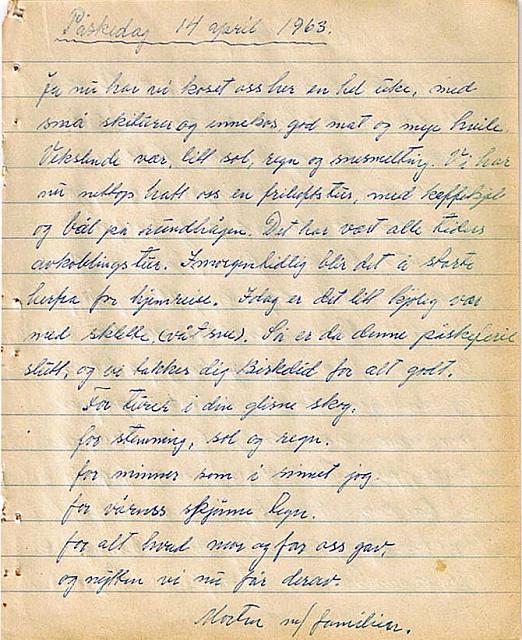 Påskedag 14 april 1963.
Ja nu har vi koset oss her en hel uke, med
små skiturer og innekos, god mat og meje hvile.
Vekslende vær, litt sol, regn og snesmelting. Vi har
nu nettop hatt oss en friluftstur, med kaffekjel
og bål på rundhågen. Det har vært alle tiders
avkoblingstur. Imorgen tidlig blir det å starte
herfra for hjemreise. Idag er det litt kjølig vær
med sklette, (våt sne). Så er da denne påskeferie
slutt, og vi takker dig Birkelid for alt godt.
For turer i din glisne skog.
for stemning, sol og regn.
for minner som i sinnet jog.
for vårnss skjønne tegn.
for alt hvad mor og far oss gav.
og nyten vi nu får derav.
Morten m/ familien.